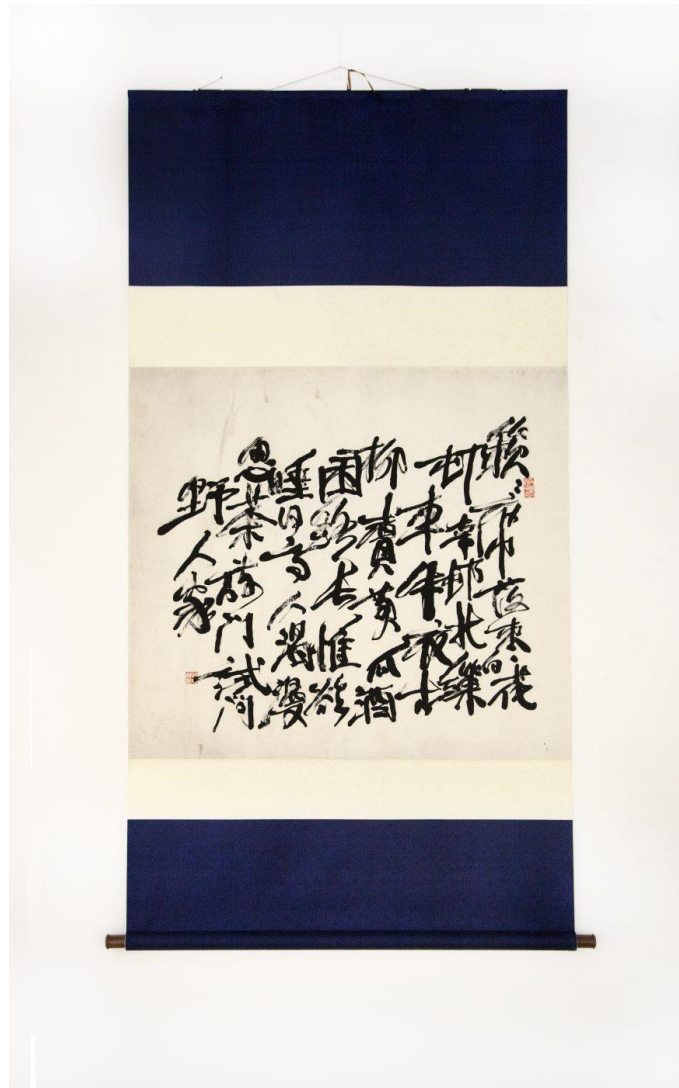 簌々衣巾落棗花
村南邨北繅
車牛衣古
柳賣黃瓜酒
困路長惟欲
睡日高人渴漫
思茶敲門試問
野人家